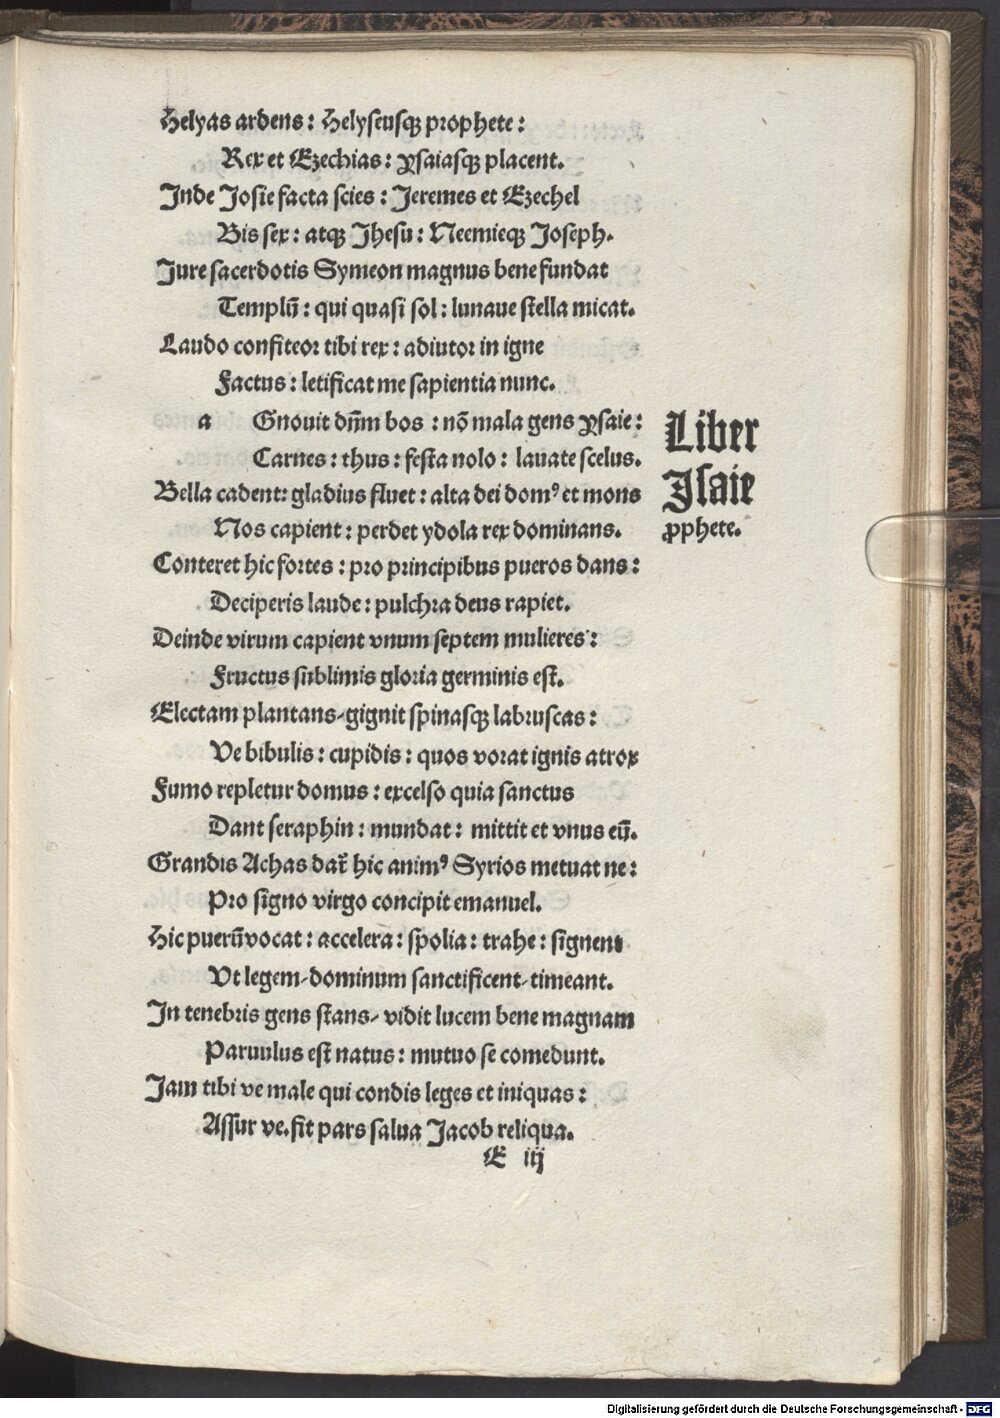 Helyas ardens: Helyseusqꝫ prophete:
Rex et Ezechias: Ysaiasqꝫ placent.
Inde Josie facta scies: Jeremes et Ezechel
Bis sex: atqꝫ Jhesu: Neemieqꝫ Joseph.
Jure sacerdotis Symeon magnus bene fundat
Templū: qui quasi sol: lunaue stella micat.
Laudo confiteor tibi rex: adiutor in igne
Factus: letificat me sapientia nunc.
a Gnouit dn̄m bos: nō mala gens Ysaie:
Carnes: thus: festa nolo: lauate scelus.
Bella cadent: gladius fluet: alta dei domꝰ et mons
Nos capient: perdet ydola rex dominans.
Conteret hic fortes: pro principibus pueros dans:
Deciperis laude: pulchra deus rapiet.
Deinde virum capient vnum septem mulieres:
Fructus sublimis gloria germinis est.
Electam plantans/gignit spinasqꝫ labruscas:
Ve bibulis: cupidis: quos vorat ignis atrox
Fumo repletur domus: excelso quia sanctus
Dant seraphin: mundat: mittit et vnus eū.
Grandis Achas dat᷑ hic animꝰ Syrios metuat ne:
Pro signo virgo concipit emanuel.
Hic puerū vocat: accelera: spolia: trahe: signent
Vt legem/dominum sanctificent/timeant.
In tenebris gens stans/vidit lucem bene magnam
Paruulus est natus: mutuo se comedunt.
Jam tibi ve male qui condis leges et iniquas:
Assur ve.fit pars salua Jacob reliqua.
E iij
Liber
Isaie
ꝓphete.
Digitalisierung gefördert durch die Deutsche Forschungsgemeinschaft - DFG